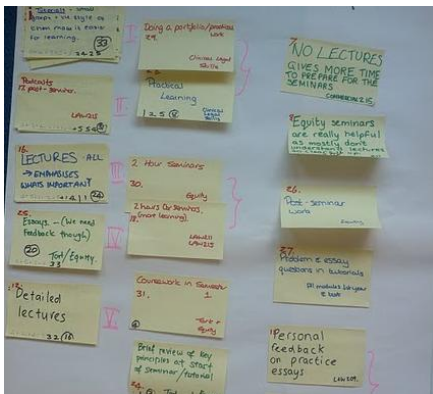 Tutorials - small
groups + style of
them makes it easier
for learning.
33
Podcasts
17. post-seminar.
LAW215
16.
LECTURES - ALL
→ EMPHASISES
WHAT'S IMPORTANT?
24
25.
Essays - (We need
feedback though)
20
Tort/Equity.
33
Detailed
lectures
32
16
I
II
III
IV
V
Doing a portfolio/practical
29. work
Clinical Legal
Skills
Practical
Learning
1 2 5 8
Clinical
Legal
Skills
2 Hour Seminars
30.
Equity
2 hours Seminars,
(more learning).
LAW215
Coursework in Semester
31. 1
Tort +
Equity
Brief review of key
principles at start
of seminar/tutorial
7.
NO LECTURES
GIVES MORE TIME
TO PREPARE FOR THE
SEMINARS
Equity seminars
are really helpful
as mostly don't
understand lectures
26.
Post-seminar
work
Equity
27.
Problem & essay
questions in tutorials
All modules
Personal
feedback
on practice
essays